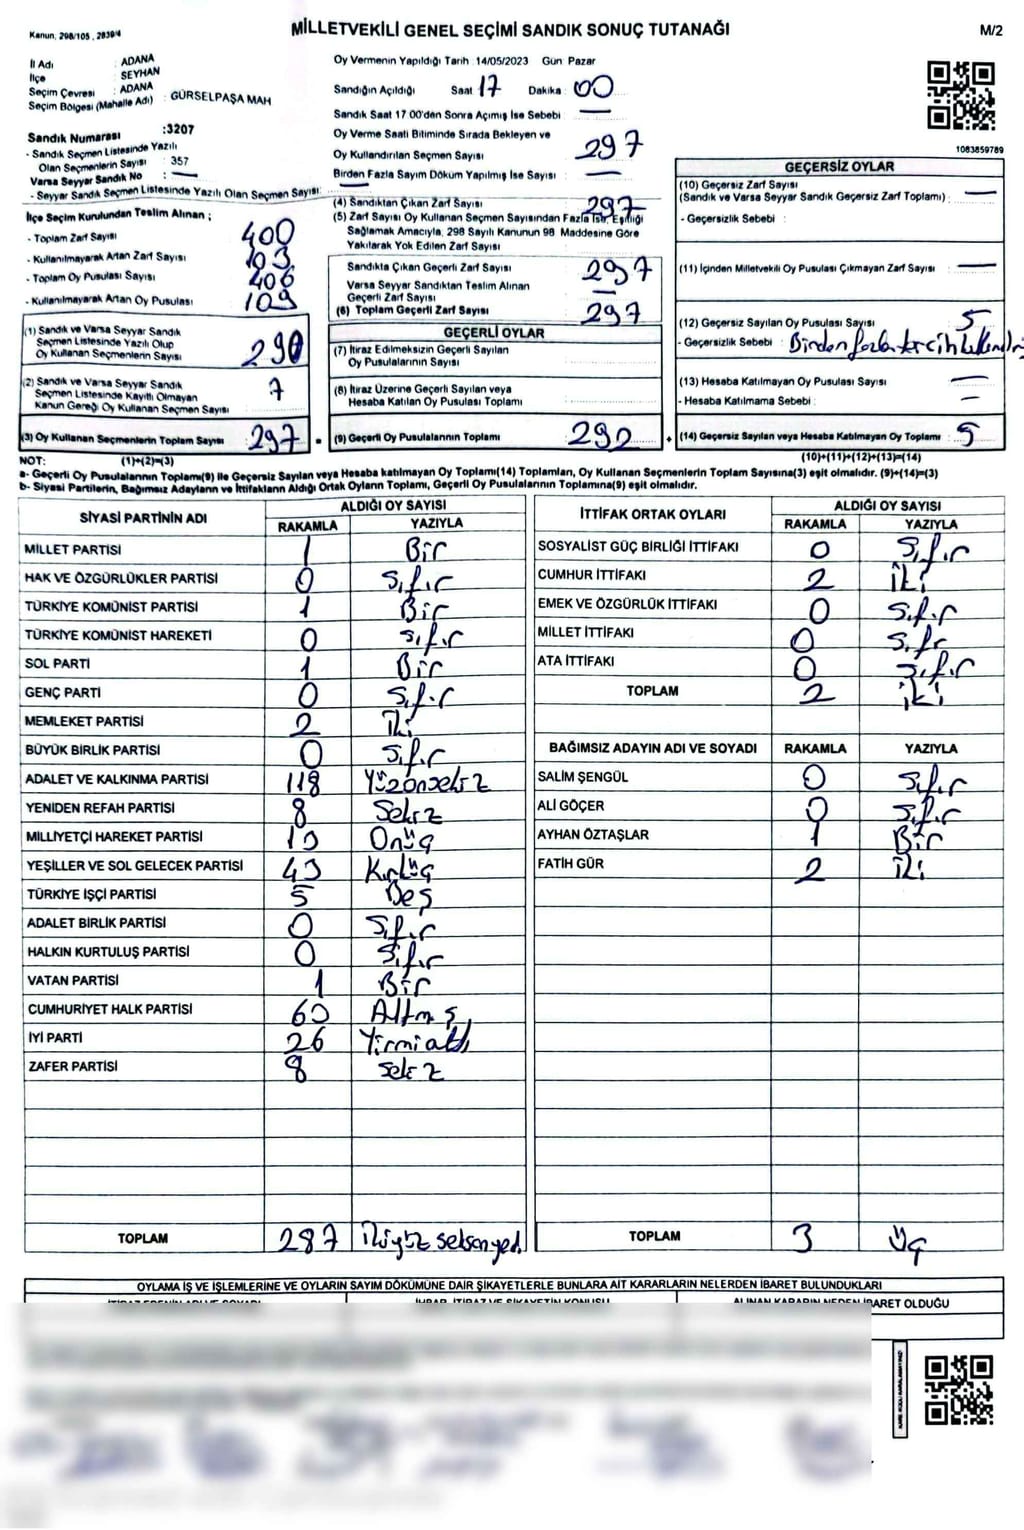 Kanun, 298/105 , 2839/4
MİLLETVEKİLİ GENEL SEÇİMİ SANDIK SONUÇ TUTANAĞI
M/2
İl Adı : ADANA
İlçe : SEYHAN
Seçim Çevresi : ADANA
Seçim Bölgesi (Mahalle Adı) : GÜRSELPAŞA MAH
Sandık Numarası :3207
- Sandık Seçmen Listesinde Yazılı
Olan Seçmenlerin Sayısı : 357
Varsa Seyyar Sandık No : —
- Seyyar Sandık Seçmen Listesinde Yazılı Olan Seçmen Sayısı: —
Oy Vermenin Yapıldığı Tarih :14/05/2023 Gün Pazar
Sandığın Açıldığı Saat 17 Dakika : 00
Sandık Saat 17 00'den Sonra Açımış İse Sebebi : —
Oy Verme Saati Bitiminde Sırada Bekleyen ve
Oy Kullandırılan Seçmen Sayısı 297
Birden Fazla Sayım Döküm Yapılmış İse Sayısı : —
1083859789
İlçe Seçim Kurulundan Teslim Alınan ;
- Toplam Zarf Sayısı 400
- Kullanılmayarak Artan Zarf Sayısı 103
- Toplam Oy Pusulası Sayısı 406
- Kullanılmayarak Artan Oy Pusulası 109
(1) Sandık ve Varsa Seyyar Sandık
Seçmen Listesinde Yazılı Olup
Oy Kullanan Seçmenlerin Sayısı 290
(2) Sandık ve Varsa Seyyar Sandık
Seçmen Listesinde Kayıtlı Olmayan
Kanun Gereği Oy Kullanan Seçmen Sayısı 7
(3) Oy Kullanan Seçmenlerin Toplam Sayısı 297 =
(4) Sandıktan Çıkan Zarf Sayısı 297
(5) Zarf Sayısı Oy Kullanan Seçmen Sayısından Fazla İse, Eşitliği
Sağlamak Amacıyla, 298 Sayılı Kanunun 98 Maddesine Göre
Yakılarak Yok Edilen Zarf Sayısı
Sandıkta Çıkan Geçerli Zarf Sayısı 297
Varsa Seyyar Sandıktan Teslim Alınan
Geçerli Zarf Sayısı —
(6) Toplam Geçerli Zarf Sayısı 297
GEÇERLİ OYLAR
(7) İtiraz Edilmeksizin Geçerli Sayılan
Oy Pusulalarının Sayısı
(8) İtiraz Üzerine Geçerli Sayılan veya
Hesaba Katılan Oy Pusulası Toplamı
(9) Geçerli Oy Pusulalarının Toplamı 292 +
GEÇERSİZ OYLAR
(10) Geçersiz Zarf Sayısı
(Sandık ve Varsa Seyyar Sandık Geçersiz Zarf Toplamı) : —
- Geçersizlik Sebebi :
(11) İçinden Milletvekili Oy Pusulası Çıkmayan Zarf Sayısı : —
(12) Geçersiz Sayılan Oy Pusulası Sayısı : 5
- Geçersizlik Sebebi : Birden fazla tercih
(13) Hesaba Katılmayan Oy Pusulası Sayısı : —
- Hesaba Katılmama Sebebi : —
(14) Geçersiz Sayılan veya Hesaba Katılmayan Oy Toplamı : 5
NOT: (1)+(2)=(3) (10)+(11)+(12)+(13)=(14)
a- Geçerli Oy Pusulalarının Toplamı(9) ile Geçersiz Sayılan veya Hesaba katılmayan Oy Toplamı(14) Toplamları, Oy Kullanan Seçmenlerin Toplam Sayısına(3) eşit olmalıdır. (9)+(14)=(3)
b- Siyasi Partilerin, Bağımsız Adayların ve İttifakların Aldığı Ortak Oyların Toplamı, Geçerli Oy Pusulalarının Toplamına(9) eşit olmalıdır.
SİYASİ PARTİNİN ADI ALDIĞI OY SAYISI
RAKAMLA YAZIYLA
MİLLET PARTİSİ 1 Bir
HAK VE ÖZGÜRLÜKLER PARTİSİ 0 Sıfır
TÜRKİYE KOMÜNİST PARTİSİ 1 Bir
TÜRKİYE KOMÜNİST HAREKETİ 0 Sıfır
SOL PARTİ 1 Bir
GENÇ PARTİ 0 Sıfır
MEMLEKET PARTİSİ 2 İki
BÜYÜK BİRLİK PARTİSİ 0 Sıfır
ADALET VE KALKINMA PARTİSİ 118 Yüzonsekiz
YENİDEN REFAH PARTİSİ 8 Sekiz
MİLLİYETÇİ HAREKET PARTİSİ 13 Onüç
YEŞİLLER VE SOL GELECEK PARTİSİ 43 Kırküç
TÜRKİYE İŞÇİ PARTİSİ 5 Beş
ADALET BİRLİK PARTİSİ 0 Sıfır
HALKIN KURTULUŞ PARTİSİ 0 Sıfır
VATAN PARTİSİ 1 Bir
CUMHURİYET HALK PARTİSİ 60 Altmış
İYİ PARTİ 26 Yirmialtı
ZAFER PARTİSİ 8 Sekiz
TOPLAM 287 İkiyüz seksenyedi
İTTİFAK ORTAK OYLARI ALDIĞI OY SAYISI
RAKAMLA YAZIYLA
SOSYALİST GÜÇ BİRLİĞİ İTTİFAKI 0 Sıfır
CUMHUR İTTİFAKI 2 İki
EMEK VE ÖZGÜRLÜK İTTİFAKI 0 Sıfır
MİLLET İTTİFAKI 0 Sıfır
ATA İTTİFAKI 0 Sıfır
TOPLAM 2 İki
BAĞIMSIZ ADAYIN ADI VE SOYADI RAKAMLA YAZIYLA
SALİM ŞENGÜL 0 Sıfır
ALİ GÖÇER 0 Sıfır
AYHAN ÖZTAŞLAR 1 Bir
FATİH GÜR 2 İki
TOPLAM 3 Üç
OYLAMA İŞ VE İŞLEMLERİNE VE OYLARIN SAYIM DÖKÜMÜNE DAİR ŞİKAYETLERLE BUNLARA AİT KARARLARIN NELERDEN İBARET BULUNDUKLARI
İHBAR, İTİRAZ VE ŞİKAYETİN KONUSU ALINAN KARARIN NEDEN İBARET OLDUĞU